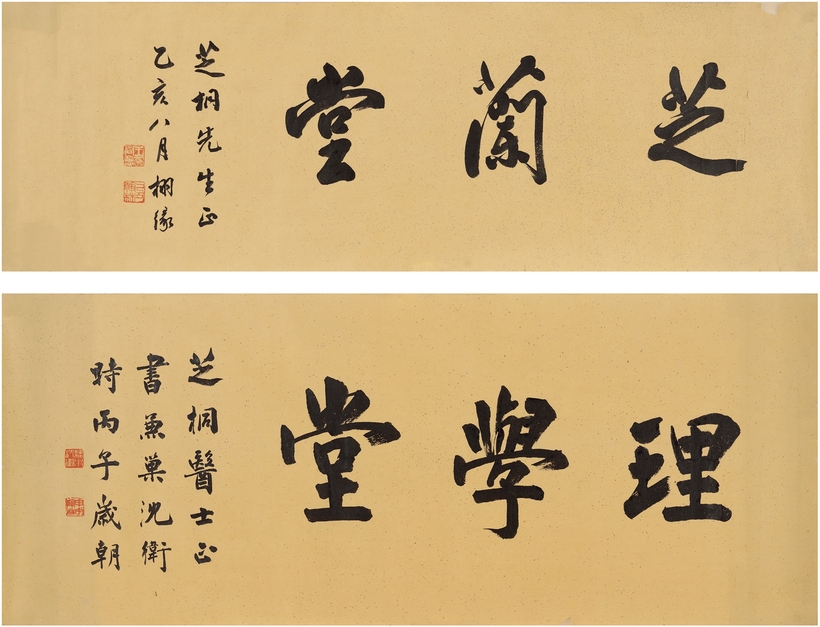 芝蘭堂
芝桐先生正
乙亥八月栩緣
理學堂
芝桐醫士正
書兼巢沈衛
時丙子歲朝